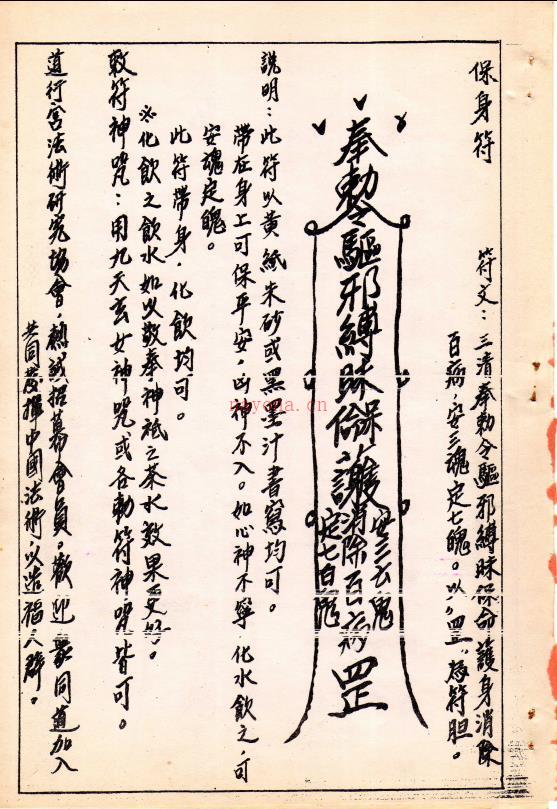 保身符
符文：三清奉勅令驅邪縛昧保命護身消除
百病，安三魂定七魄。以「罡」為符胆。
奉勅令驅邪縛昧保命護
消除百病
安三魂
定七白鬼
罡
說明：此符以黄紙朱砂或黑墨汁書寫均可。
帶在身上可保平安，凶神不入。如心神不寧，化水飲之，可
安魂定魄。
此符帶身，化飲均可。
※化飲之飲水如以敬奉神祇之茶水效果更好。
敕符神咒：用九天玄女神咒或各勅符神咒皆可。
道行宫法術研究協會，熱誠招募會員，歡迎眾同道加入
共同發揮中國法術以造福人群。
nayona.cn